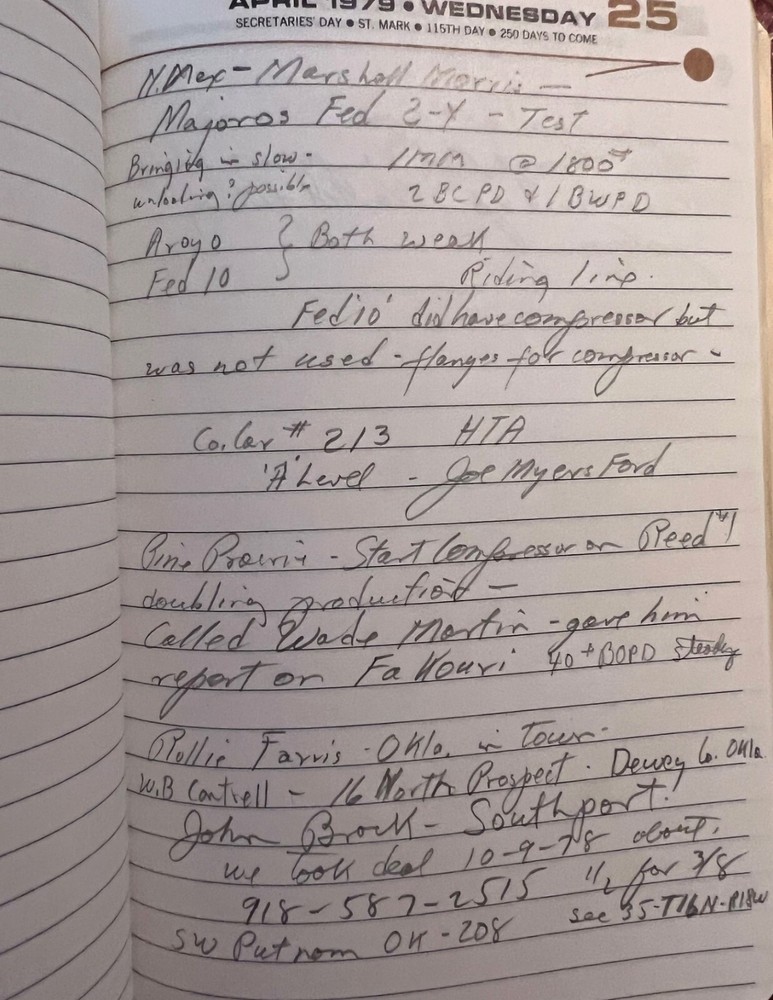 APRIL 1979 • WEDNESDAY 25
SECRETARIES' DAY • ST. MARK • 115TH DAY • 250 DAYS TO COME
N.Mex - Marshall Morris -
Majoros Fed 2-Y - Test
Bringing in slow - 1mm @ 1800#
unloading? possible 2 BCPD & 1 BWPD
Aroyo } Both weak
Fed 10 Riding line.
Fed '10' did have compressor but
was not used - flanges for compressor -
Co. Car # 213 HTA
'A' Level - Joe Myers Ford
Pine Prairie - Start Compressor on Reed #1
doubling production -
Called Wade Martin - gave him
report on Fakouri 40+ BOPD Steady
Rollie Farris - Okla. in Town -
W.B Cantrell - 16 North Prospect. Dewey Co. Okla
John Brock - Southport!
we took deal 10-9-78 about.
918-587-2515 1/2 for 3/8
SW Putnam OK-208 see 35-T16N-R18W